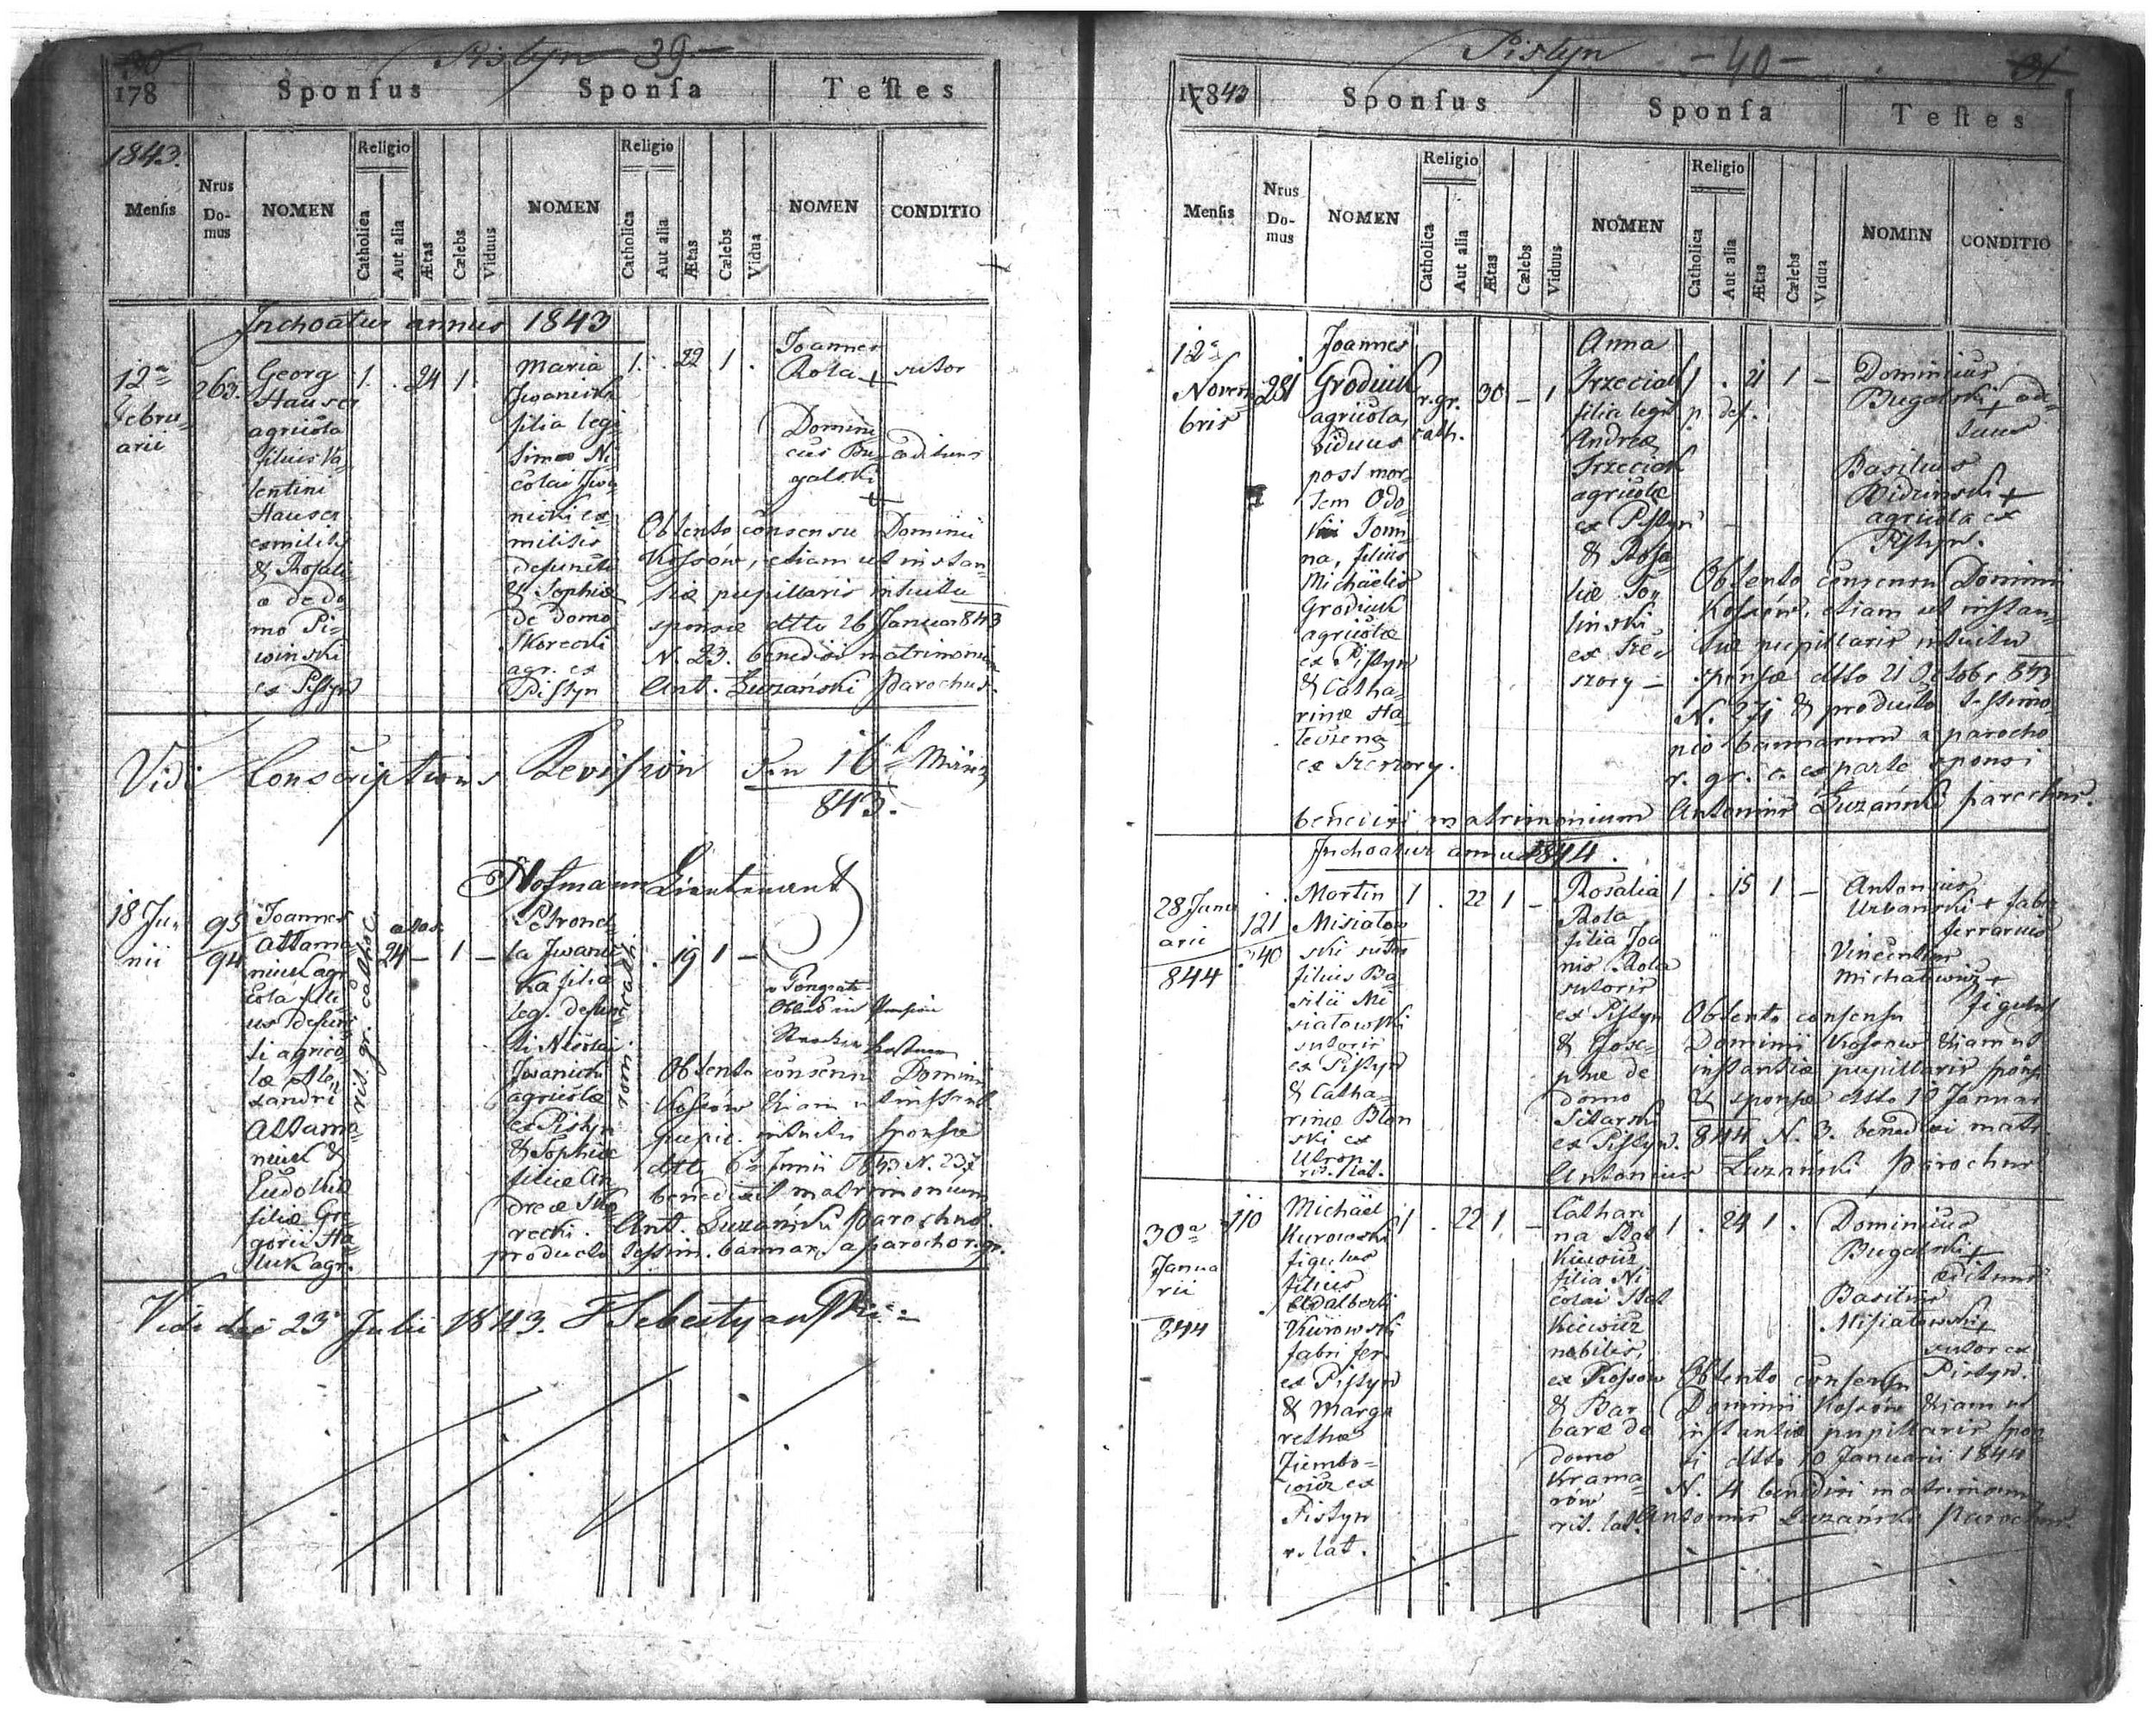 Pistyn 39.
178
Sponsus
Sponsa
Testes
1843.
Mensis
Nrus Do-mus
NOMEN
Religio
Catholica
Aut alia
Ætas
Cælebs
Viduus
NOMEN
Religio
Catholica
Aut alia
Ætas
Cælebs
Vidua
NOMEN
CONDITIO
Inchoatur annus 1843
12a
Febru-
arii
263.
Georg
Hauser
agricola
filius Va-
lentini
Hauser
exmilitis
& Rosali-
æ de do-
mo Pi-
winski
ex Pistyn
1. . 24 1
Maria
Iwanicka
filia legi-
Ni-
colai Iwa-
nicki ex-
militis
defuncti
& Sophiæ
de Domo
Skorecki
agr. ex
Pistyn
1. . 22 1 .
Joannes
Rota + sutor
Domini-
cus Bu-
galski
+
ædituus
Obtento consensu Dominii
Kossów, etiam ut instan-
tiæ pupillaris intuitu
sponsæ dtto 26 Januar 843
N. 23. benedixi matrimonium
Ant. Luzański Parochus.
Vidi Conscriptions Revision den 16t März
843.
Hofmann Lieutenant
18 Ju-
nii
95
94
Joannes
Attama-
niuk agr
cola fili-
us defun-
ti agrico-
læ Ale-
xandri
Attama-
niuk &
Eudokiæ
filiæ Gre-
gorii Ha-
luk agr.
rit. gr. cathol
24 - 1 -
Petronel-
la Iwanic-
ka filia
leg. defunc-
ti Nicolai
Iwanicki
agricolæ
ex Pistyn
& Sophiæ
filiæ An-
dreæ Sko-
recki.
. 19 1 -
Obtento consensu Dominii
Kossów etiam ut instant.
pupil. intuitu sponsæ
dtto 6a Junii 843 N. 237
benedixit matrimonium
Ant. Luzański Parochus.
producto testim. bannar. a parocho r. gr.
Vidi die 23 Julii 1843.
Pistyn - 40 -
31
17843
Sponsus
Sponsa
Testes
Mensis
Nrus Do-mus
NOMEN
Religio
Catholica
Aut alia
Ætas
Cælebs
Viduus
NOMEN
Religio
Catholica
Aut alia
Ætas
Cælebs
Vidua
NOMEN
CONDITIO
12a
Novem
bris
281
Joannes
Grodiuk
agricola,
viduus
post mor-
tem Odo-
kii Tomi-
na, filius
Michäelis
Grodiuk
agricolæ
ex Pistyn
& Catha-
rinæ Ha-
ex Szeszory.
r. gr.
cath.
30 - 1
Anna
Trzeciak
filia legit
Andreæ
Trzeciak
agricolæ
ex Pistyn
& Rosa-
liæ To-
linski
ex Sze-
szory -
1 . 21 1 -
Dominicus
Bugalski + ædi-
tuus
Basilius
Widzinski +
agricola ex
Pistyn.
Obtento consensu Dominii
Kossów, etiam ut instan-
tiæ pupillaris intuitu
sponsæ dtto 21 Octobr 843
N. 271 & producto testimo-
nio bannarum a parocho
r. gr. c. ex parte sponsi
benedixi matrimonium Antonius Luzański parochus.
Inchoatur annus 1844.
28 Janu
arii
844
121
240
Martin
Misiatow
ski sutor
filius Ba-
silii Mi-
siatowski
sutoris
ex Pistyn
& Catha-
rinæ Blon
ski ex
Utrop
rit. lat.
1 . 22 1 -
Rosalia
Rota
filia Joa
nis Rota
sutoris
ex Pistyn
& Jose-
phæ de
domo
Sitarski
ex Pistyn.
1 . 15 1 -
Antonius
Urbanski + faber
ferrarius
Vincentius
Michalewicz +
figulus
Obtento consensu
Dominii Kossow etiam ut
instantiæ pupillaris sponsi
& sponsæ dtto 10 Januar
844 N. 3. benedixi matr.
Antonius Luzański Parochus
30a
Janua
rii
844
110
Michäel
Kurowski
figulus
filius
Adalberti
Kurowski
fabri fer
ex Pistyn
& Marga
rethæ
Ziembo-
wicz ex
Pistyn
r. lat.
1 . 22 1 -
Cathari
na Stat
kiewicz
filia Ni
colai Stat
kiewicz
nobilis,
ex Kossow
& Bar
baræ de
domo
Krama-
rów
rit. lat.
1 . 24 1 .
Dominicus
Bugalski +
ædituus
Basilius
Misiatowski +
sutor ex
Pistyn.
Obtento consensu
Dominii Kossow etiam ut
instantiæ pupillaris spon
si dtto 10 Januarii 1844
N. 4 benedixi matrimonium
Antonius Luzański Parochus.